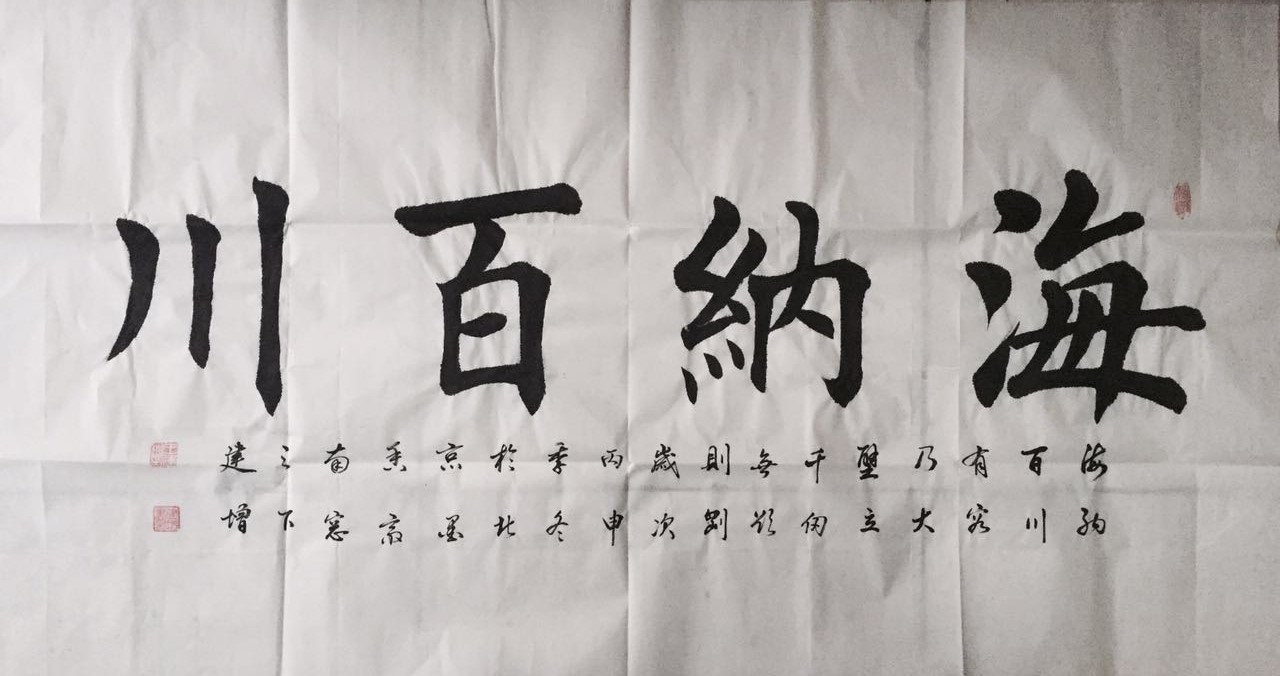 海納百川
海納
百川
有容
乃大
壁立
千仞
無欲
則剛
歲次
丙申
季冬
於北
京墨
香齋
南窓
之下
建增